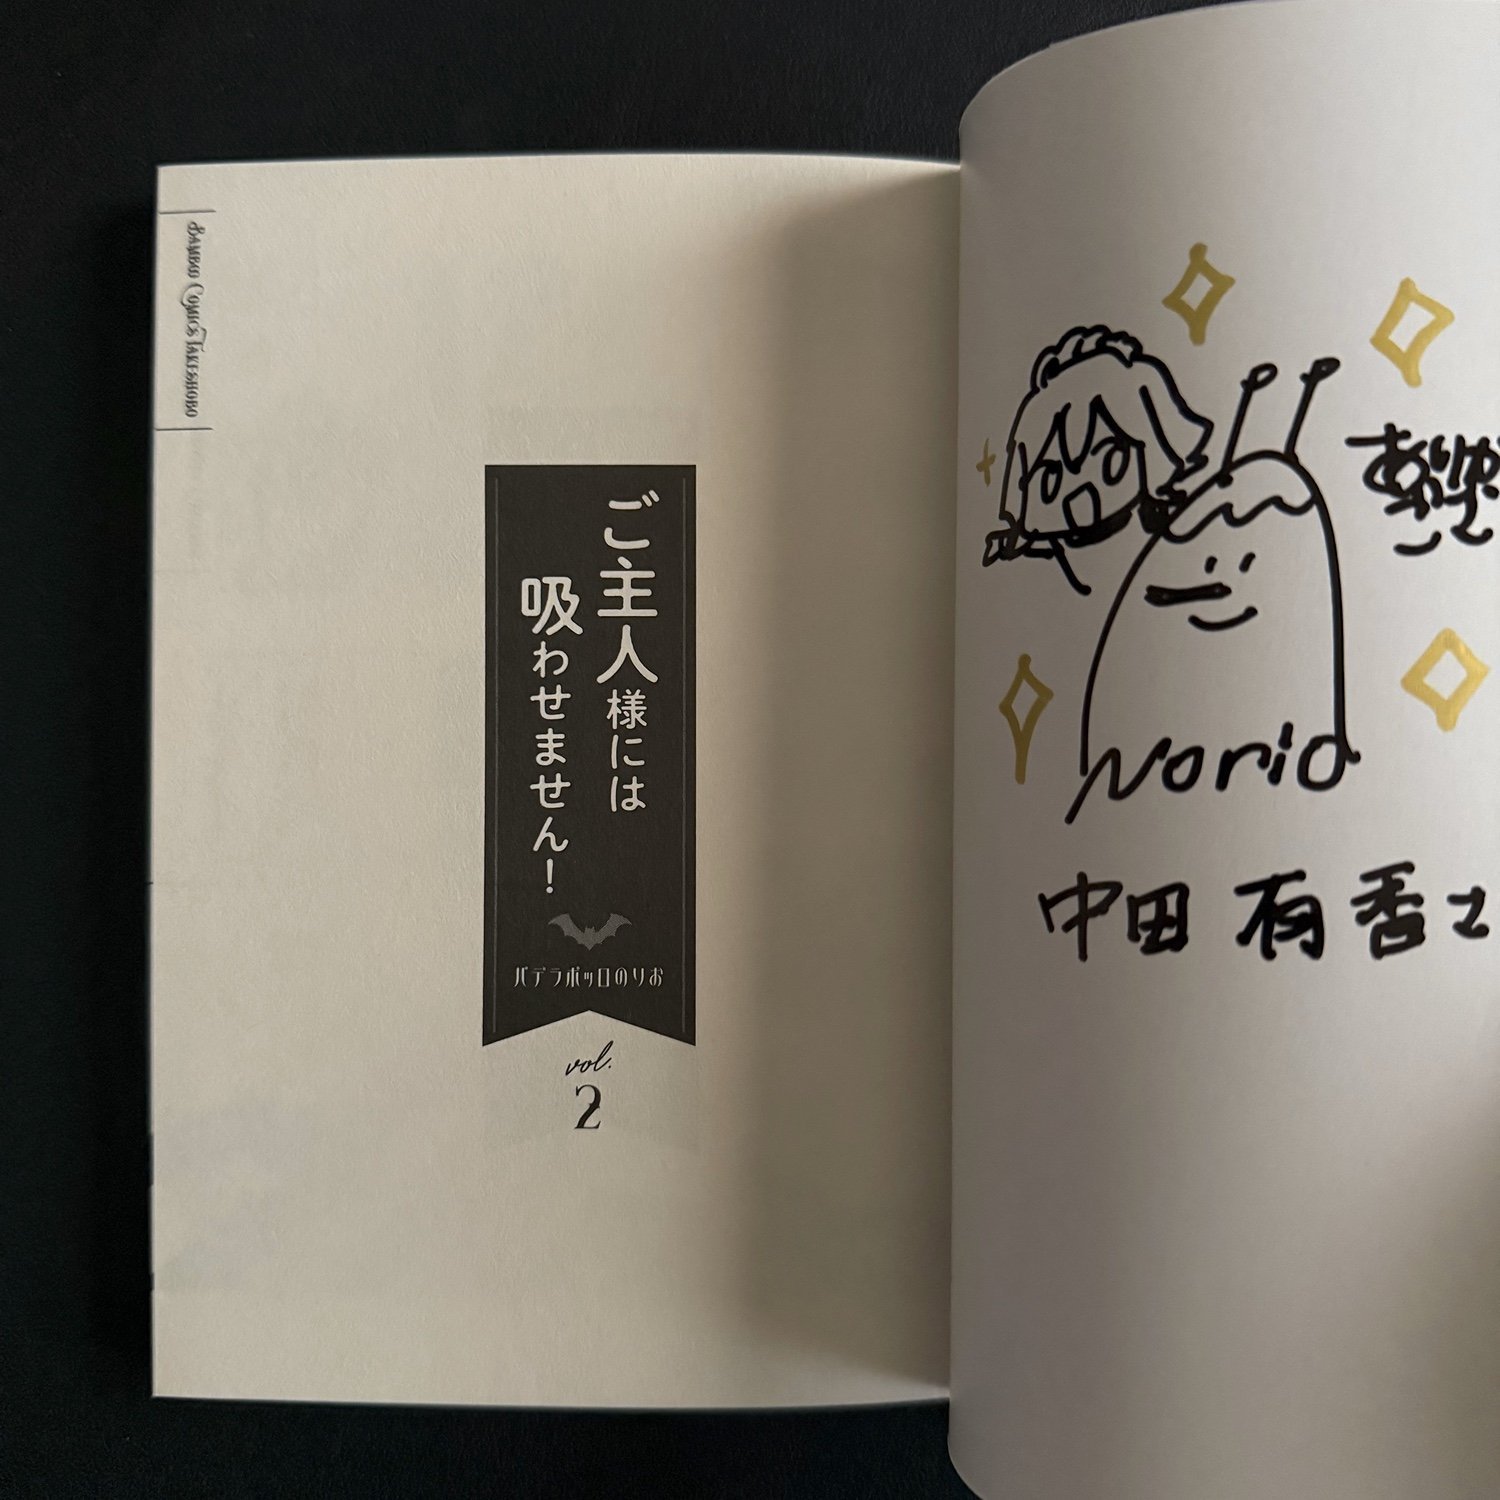 BAMBOO COMICS TAKESHOBO
ご主人様には
吸わせません!
バデラボッロのりお
vol.
2
Norio
中田 有香